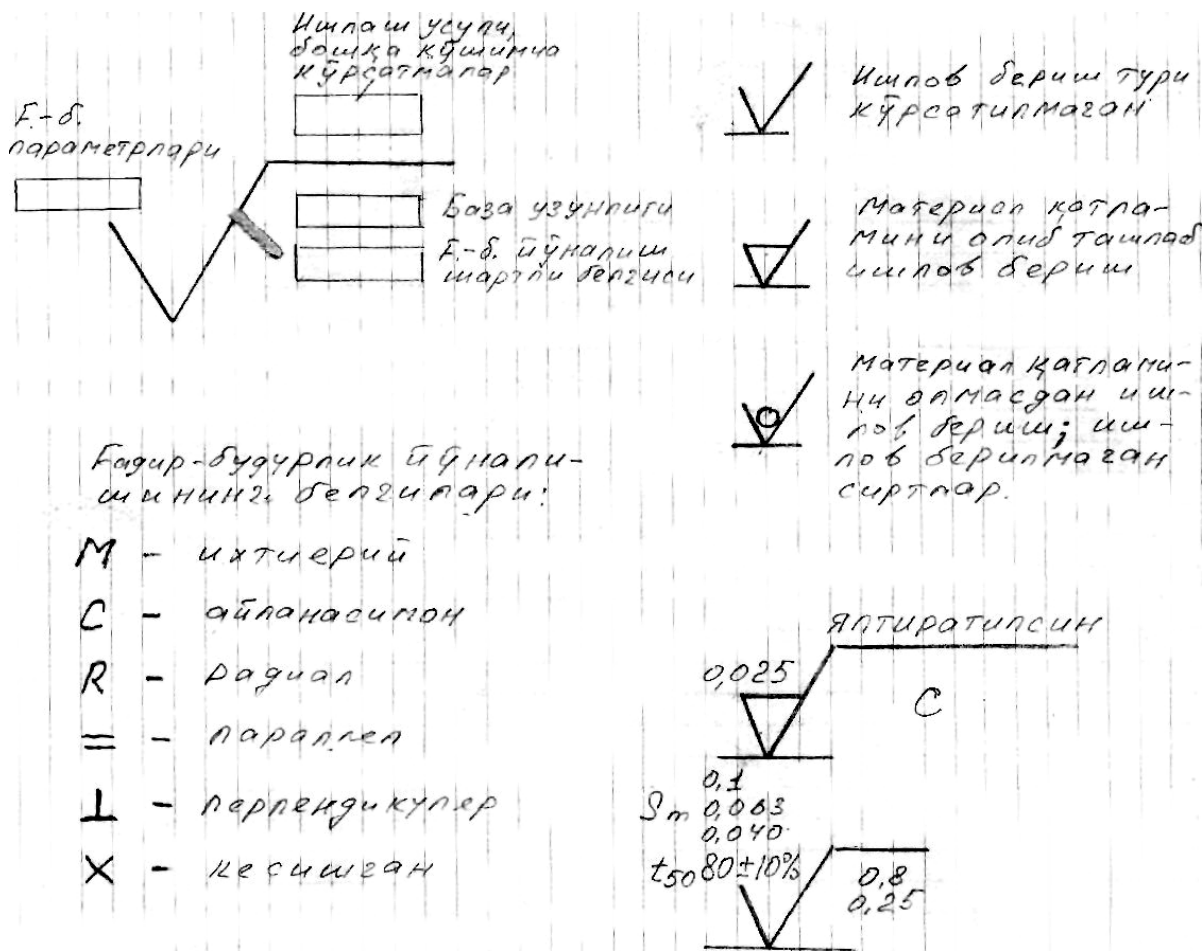 Ишлаш усули,
бошқа қўшимча
кўрсатмалар
Ғ.-б.
параметрлари
База узунлиги
Ғ.-б. йўналиш
шартли белгиси
Ишлов бериш тури
кўрсатилмаган
Материал қатла-
мини олиб ташлаб
ишлов бериш
Материал қатлами-
ни олмасдан иш-
лов бериш; иш-
лов берилмаган
сиртлар.
Ғадир-будурлик йўнали-
шининг белгилари:
M - ихтиерий
C - айланасимон
R - радиал
= - параллел
⊥ - перпендикулер
X - кесишган
Ялтиратилсин
0,025
C
0,1
Sm 0,063
0,040
t50 80±10%
0,8
0,25